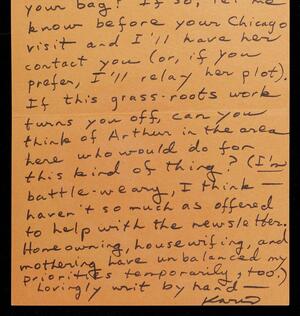 your bag? If so, let me
know before your Chicago
visit and I'll have her
contact you (or, if you
prefer, I'll relay her plot).
If this grass-roots work
turns you off, can you
think of Arthur in the area
here who would do for
this kind of thing? (I'm
battle-weary, I think —
haven't so much as offered
to help with the newsletter.
Homeowning, housewifing, and
mothering have unbalanced my
priorities temporarily, too.)
Lovingly writ by hand —
Karen